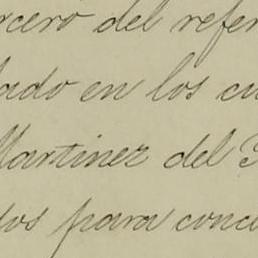 rcero del refer
ado en los cu
Martinez del
dos para conce